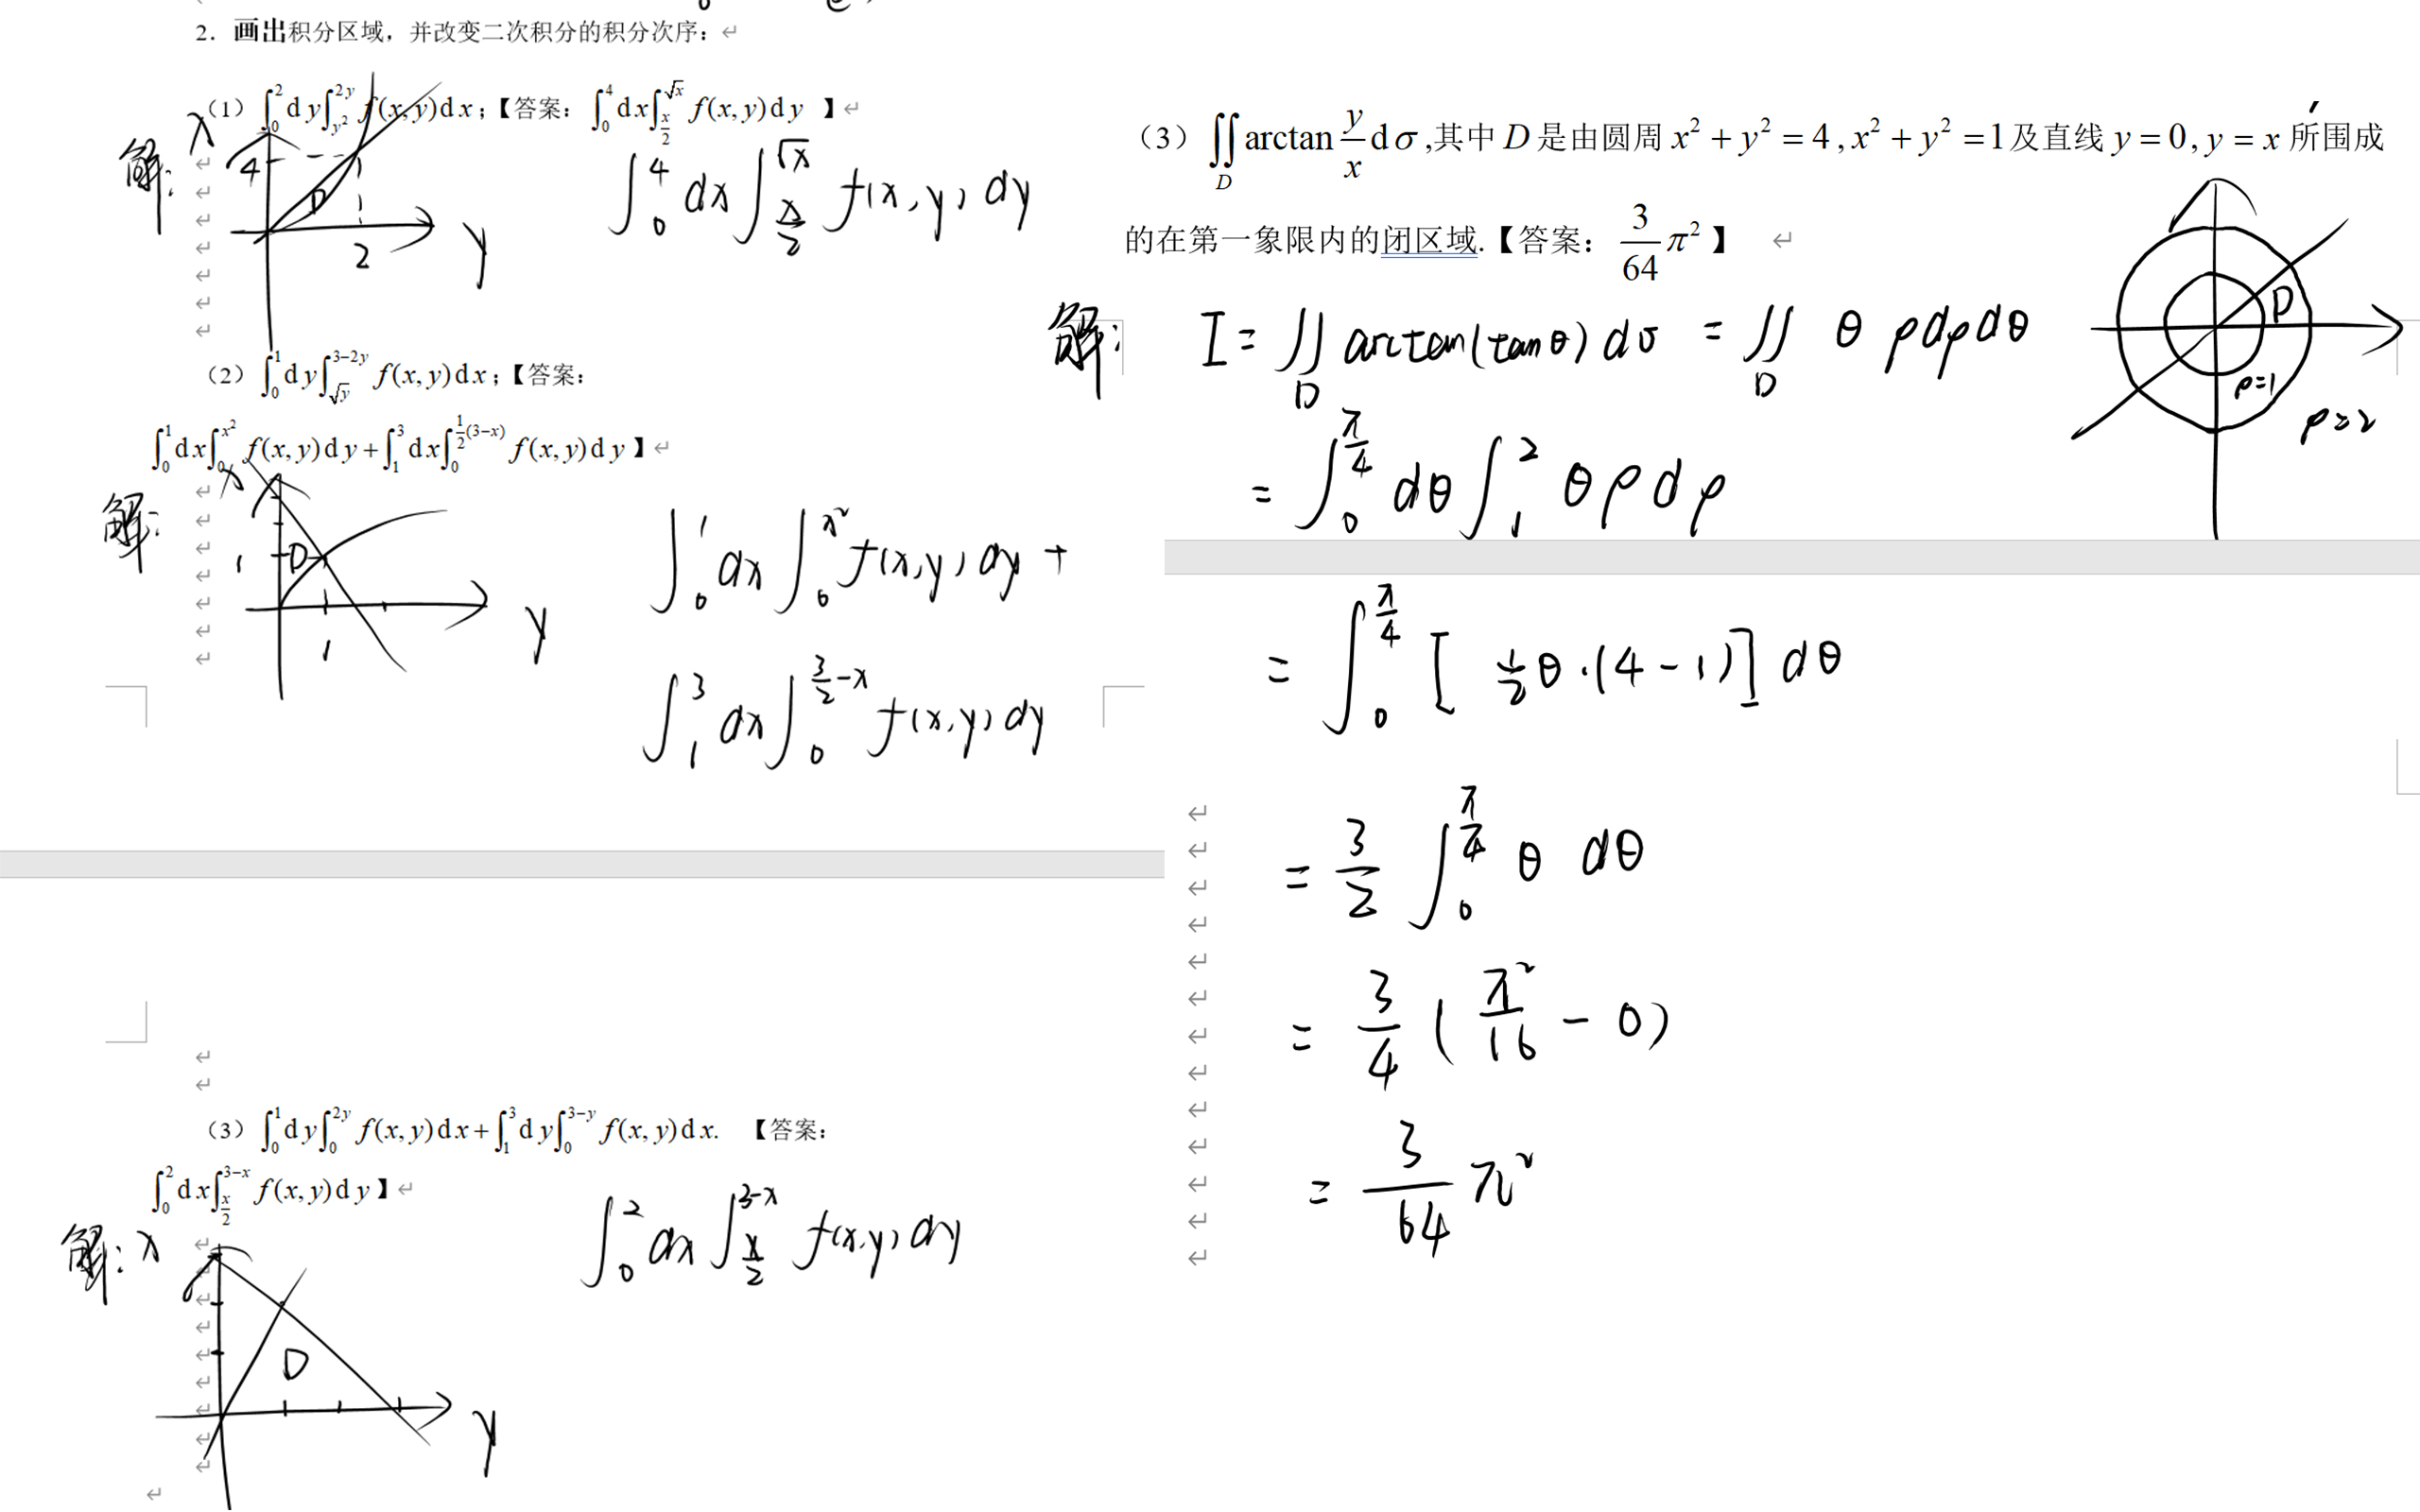 2．画出积分区域，并改变二次积分的积分次序：
（1）∫₀² dy∫_{y²}^{2y} f(x,y)dx；【答案：∫₀⁴ dx∫_{x/2}^{√x} f(x,y)dy 】
解：
x
4
D
2
y
∫₀⁴ dx∫_{x/2}^{√x} f(x,y)dy
（2）∫₀¹ dy∫_{√y}^{3−2y} f(x,y)dx；【答案：
∫₀¹ dx∫₀^{x²} f(x,y)dy+∫₁³ dx∫₀^{½(3−x)} f(x,y)dy】
解：
x
1
D
1
y
∫₀¹ dx∫₀^{x²} f(x,y)dy+
∫₁³ dx∫₀^{3/2−x} f(x,y)dy
（3）∫₀¹ dy∫₀^{2y} f(x,y)dx+∫₁³ dy∫₀^{3−y} f(x,y)dx. 【答案：
∫₀² dx∫_{x/2}^{3−x} f(x,y)dy】
解：
x
D
y
∫₀² dx∫_{x/2}^{3-x} f(x,y)dy
（3）∬_D arctan y/x dσ,其中D是由圆周x²+y²=4,x²+y²=1及直线y=0,y=x所围成
的在第一象限内的闭区域.【答案：3/64 π²】
解：
I=∬_D arctan(tanθ)dσ = ∬_D θ ρdρdθ
D
ρ=1
ρ=2
=∫₀^{π/4} dθ∫₁² θρdρ
=∫₀^{π/4} [½θ·(4-1)]dθ
=3/2 ∫₀^{π/4} θ dθ
=3/4 (π²/16 - 0)
=3/64 π²